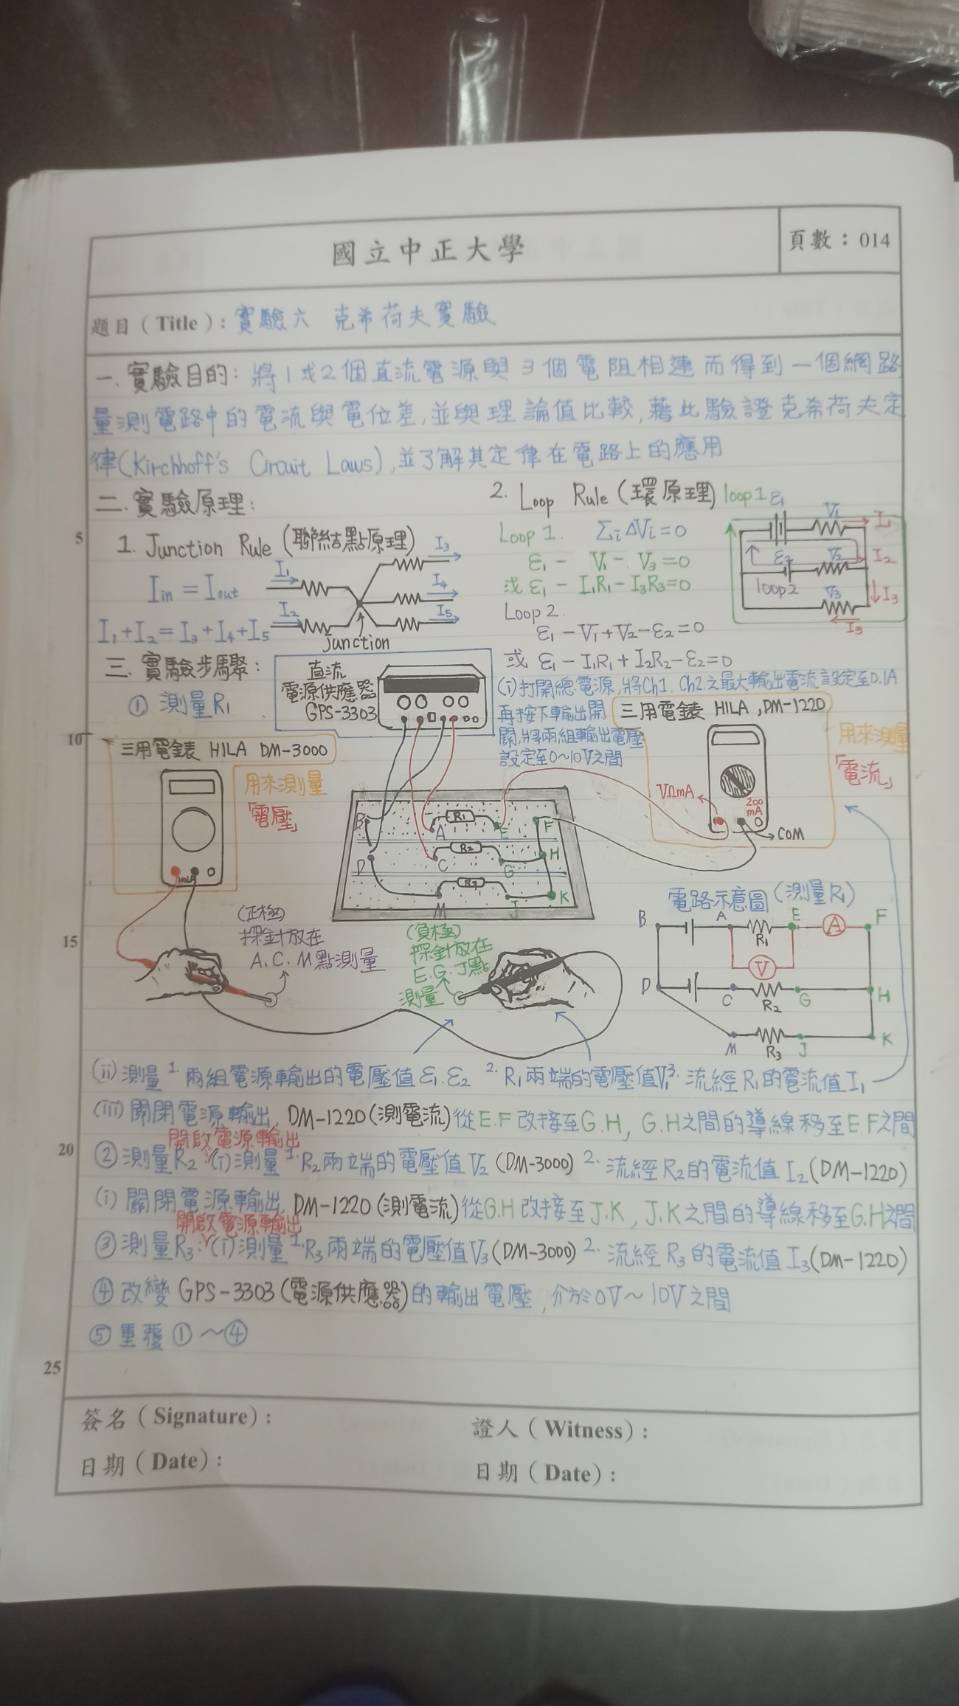 國立中正大學
頁數：014
題目（Title）：實驗六 克希荷夫實驗
一. 實驗目的：將1或2個直流電源與3個電阻相連而得到一個網路
量測電路中的電流與電位差,並與理論值比較,藉此驗證克希荷夫定
律(Kirchhoff's Circuit Laws),並了解其定律在電路上的應用
二. 實驗原理：
1. Junction Rule (聯結點原理)
Iin = Iout
I1+I2=I3+I4+I5
I1
I2
I3
I4
I5
junction
2. Loop Rule (環原理)
Loop 1. Σi ΔVi=0
ε1 - V1 - V3 =0
或 ε1 - I1R1 - I3R3=0
Loop 2.
ε1 -V1+V2-ε2=0
或 ε1 - I1R1 + I2R2-ε2=0
loop1
ε1
V1
I1
ε2
V2
I2
loop2
V3
I3
I3
三. 實驗步驟：
① 測量R1
直流
電源供應器
GPS-3303
(i)打開總電源,將Ch1. Ch2之最大輸出電流設定至0.1A
再按下輸出開
關,將兩組輸出電壓
設定至0~10V之間
三用電錶 HILA DM-3000
用來測量
「電壓」
三用電錶 HILA , DM-1220
用來測量
「電流」
VΩmA
200
mA
COM
B
A
R1
E
F
D
C
R2
G
H
M
R3
J
K
(正極)
探針放在
A. C. M點測量
(負極)
探針放在
E. G. J點
測量
電路示意圖(測量R1)
B
A
R1
E
A
F
V
D
C
R2
G
H
M
R3
J
K
(ii)測量 1. 兩組電源輸出的電壓值ε1. ε2 2. R1兩端的電壓值V1 3. 流經R1的電流值I1
(iii)關閉電源輸出, DM-1220(測電流)從E.F改接至G.H, G.H之間的導線移至E.F之間
開啟電源輸出
②測量R2 (i)測量 1. R2兩端的電壓值V2 (DM-3000) 2. 流經R2的電流值I2(DM-1220)
(i)關閉電源輸出, DM-1220(測電流)從G.H改接至J.K, J.K之間的導線移至G.H之間
開啟電源輸出
③測量R3. (i)測量 1. R3兩端的電壓值V3(DM-3000) 2. 流經R3的電流值I3(DM-1220)
④改變GPS-3303(電源供應器)的輸出電壓, 介於0V~10V之間
⑤重覆①~④
5
10
15
20
25
簽名（Signature）：
證人（Witness）：
日期（Date）：
日期（Date）：